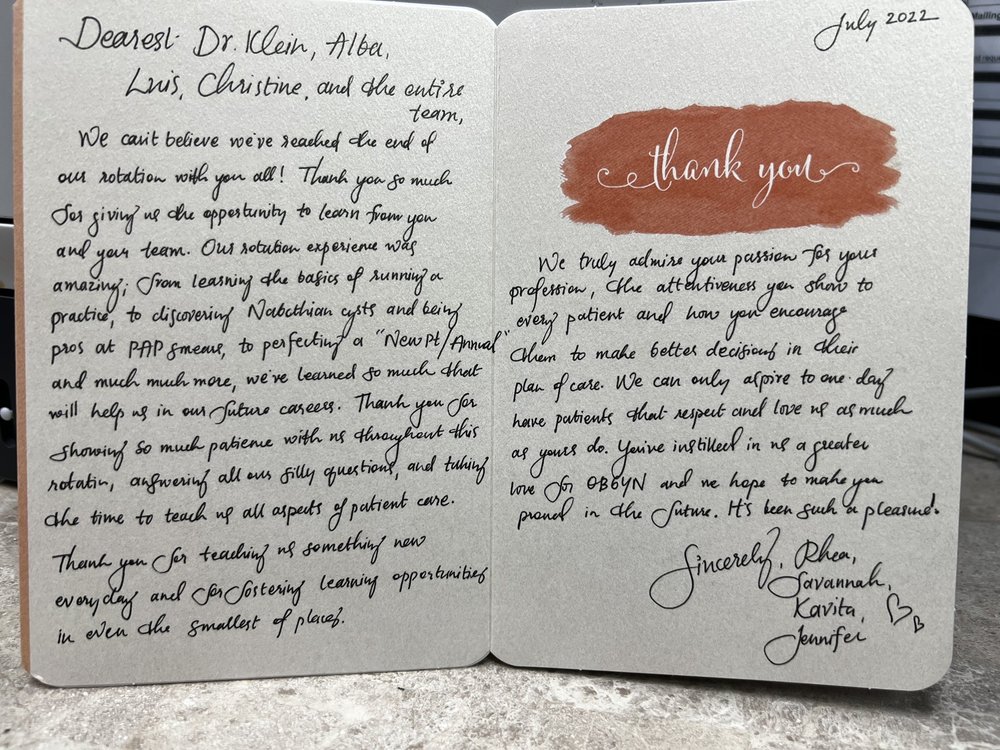 Dearest Dr. Klein, Alba,
Luis, Christine, and the entire
team,
We can't believe we've reached the end of
our rotation with you all! Thank you so much
for giving us the opportunity to learn from you
and your team. Our rotation experience was
amazing; from learning the basics of running a
practice, to discovering Nabothian cysts and being
pros at PAP smears, to perfecting a "New Pt/Annual"
and much much more, we've learned so much that
will help us in our future careers. Thank you for
showing so much patience with us throughout this
rotation, answering all our silly questions, and taking
the time to teach us all aspects of patient care.
Thank you for teaching us something new
everyday and for fostering learning opportunities
in even the smallest of places.
July 2022
thank you
We truly admire your passion for your
profession, the attentiveness you show to
every patient and how you encourage
them to make better decisions in their
plan of care. We can only aspire to one day
have patients that respect and love us as much
as yours do. You've instilled in us a greater
love for OBGYN and we hope to make you
proud in the future. It's been such a pleasure!
Sincerely, Rhea,
Savannah,
Kavita,
Jennifer